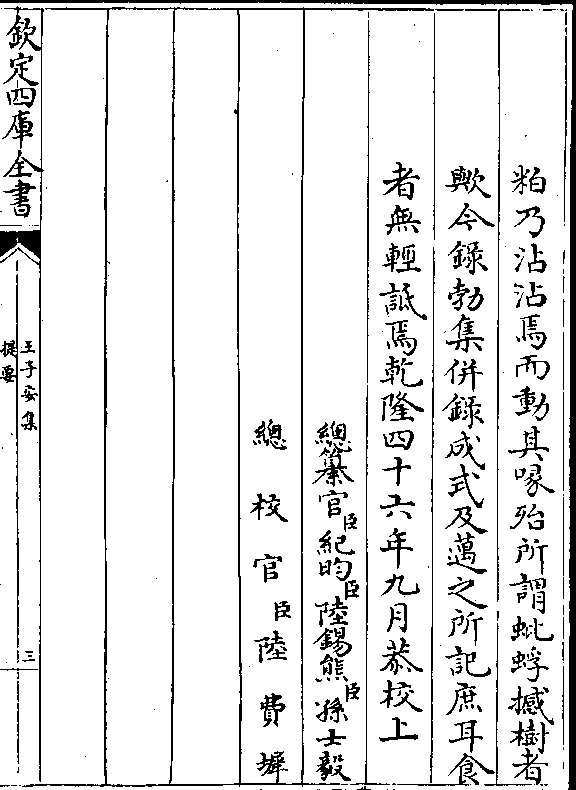 粕乃沾沾焉而動其喙殆所謂蚍蜉撼樹者
歟今錄勃集併錄成式及邁之所記庶耳食
者無輕詆焉乾隆四十六年九月恭校上
總纂官臣紀昀臣陸錫熊臣孫士毅
總校官臣陸費墀
欽定四庫全書
王子安集
提要
三